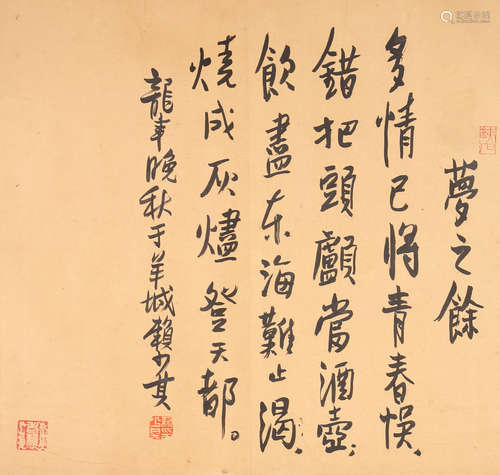 夢之餘
多情已將青春悮、
錯把頭顱當酒壺；
飲盡東海難止渴、
燒成灰燼登天都。
龍年晚秋于羊城賴少其